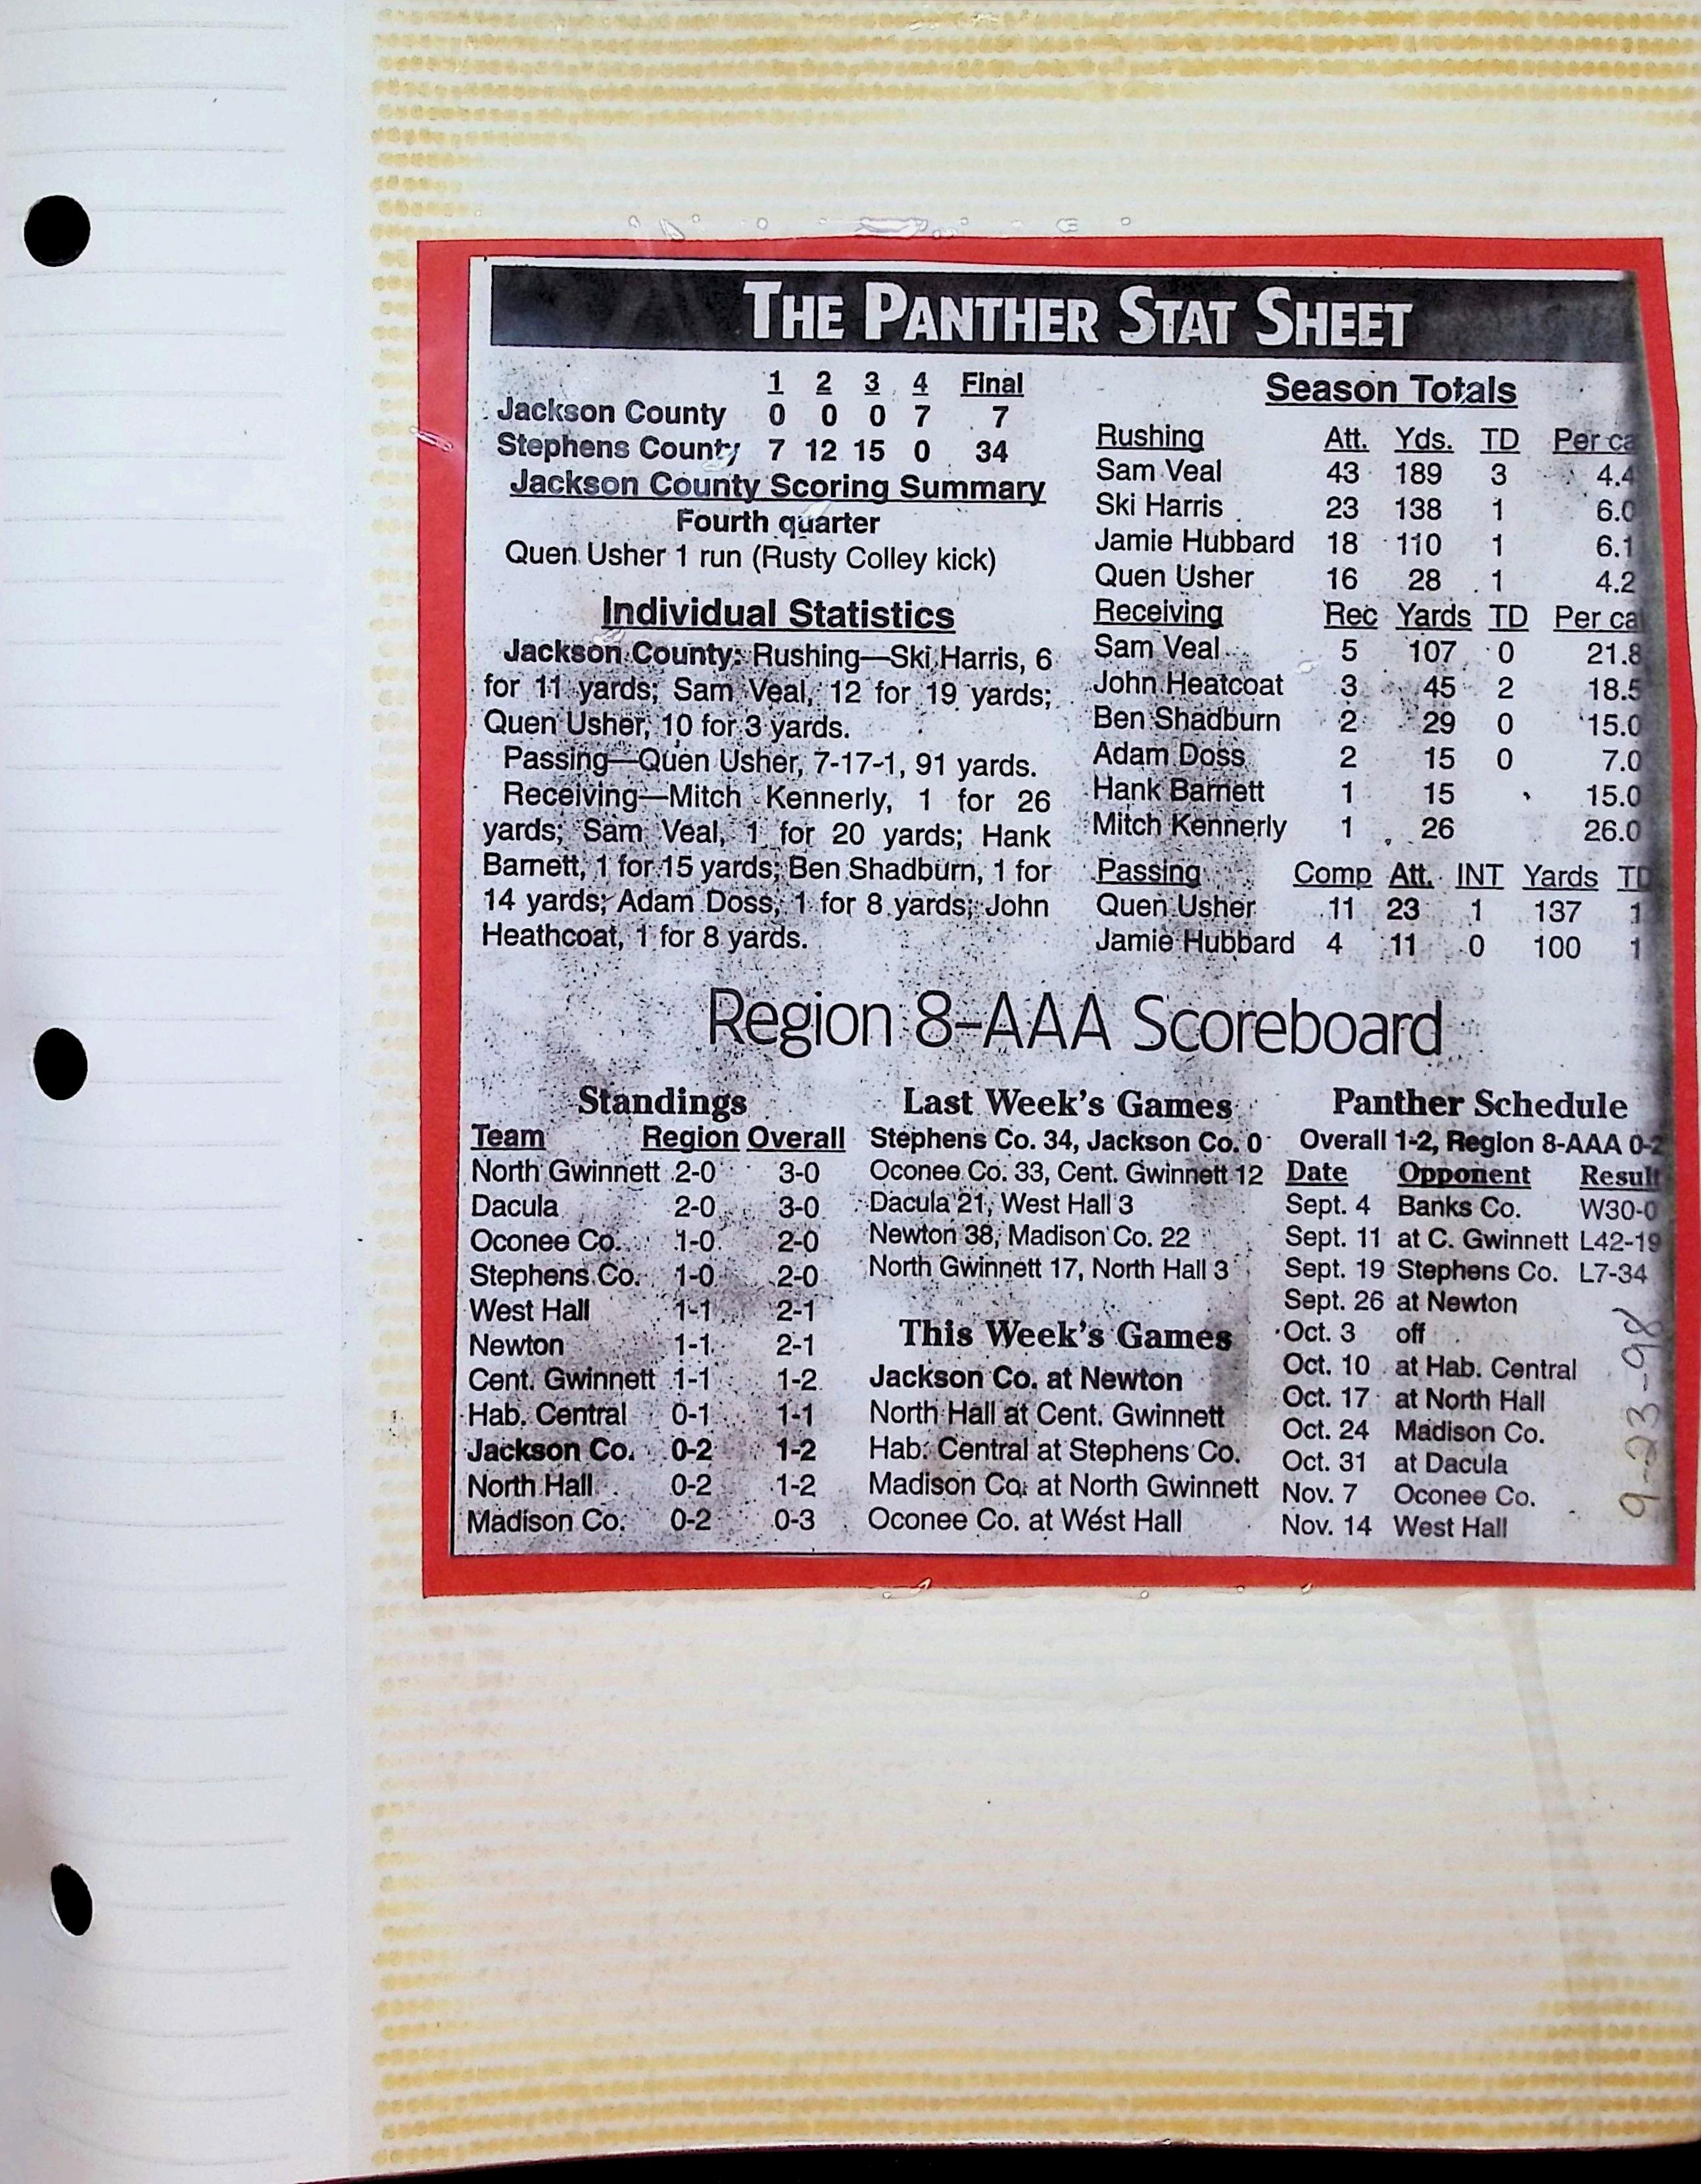 THE PANTHER STAT SHEET
1 2 3 4 Final
Jackson County 0 0 0 7 7
Stephens County 7 12 15 0 34
Jackson County Scoring Summary
Fourth quarter
Quen Usher 1 run (Rusty Colley kick)
Individual Statistics
Jackson County: Rushing—Ski Harris, 6
for 11 yards; Sam Veal, 12 for 19 yards;
Quen Usher, 10 for 3 yards.
Passing—Quen Usher, 7-17-1, 91 yards.
Receiving—Mitch Kennerly, 1 for 26
yards; Sam Veal, 1 for 20 yards; Hank
Barnett, 1 for 15 yards; Ben Shadburn, 1 for
14 yards; Adam Doss, 1 for 8 yards; John
Heathcoat, 1 for 8 yards.
Season Totals
Rushing Att. Yds. TD Per ca
Sam Veal 43 189 3 4.4
Ski Harris 23 138 1 6.0
Jamie Hubbard 18 110 1 6.1
Quen Usher 16 28 1 4.2
Receiving Rec Yards TD Per ca
Sam Veal 5 107 0 21.8
John Heatcoat 3 45 2 18.5
Ben Shadburn 2 29 0 15.0
Adam Doss 2 15 0 7.0
Hank Barnett 1 15 15.0
Mitch Kennerly 1 26 26.0
Passing Comp Att. INT Yards TD
Quen Usher 11 23 1 137 1
Jamie Hubbard 4 11 0 100 1
Region 8-AAA Scoreboard
Standings
Team Region Overall
North Gwinnett 2-0 3-0
Dacula 2-0 3-0
Oconee Co. 1-0 2-0
Stephens Co. 1-0 2-0
West Hall 1-1 2-1
Newton 1-1 2-1
Cent. Gwinnett 1-1 1-2
Hab. Central 0-1 1-1
Jackson Co. 0-2 1-2
North Hall 0-2 1-2
Madison Co. 0-2 0-3
Last Week's Games
Stephens Co. 34, Jackson Co. 0
Oconee Co. 33, Cent. Gwinnett 12
Dacula 21, West Hall 3
Newton 38, Madison Co. 22
North Gwinnett 17, North Hall 3
This Week's Games
Jackson Co. at Newton
North Hall at Cent. Gwinnett
Hab. Central at Stephens Co.
Madison Co. at North Gwinnett
Oconee Co. at West Hall
Panther Schedule
Overall 1-2, Region 8-AAA 0-2
Date Opponent Result
Sept. 4 Banks Co. W30-0
Sept. 11 at C. Gwinnett L42-19
Sept. 19 Stephens Co. L7-34
Sept. 26 at Newton
Oct. 3 off
Oct. 10 at Hab. Central
Oct. 17 at North Hall
Oct. 24 Madison Co.
Oct. 31 at Dacula
Nov. 7 Oconee Co.
Nov. 14 West Hall
9-23-98